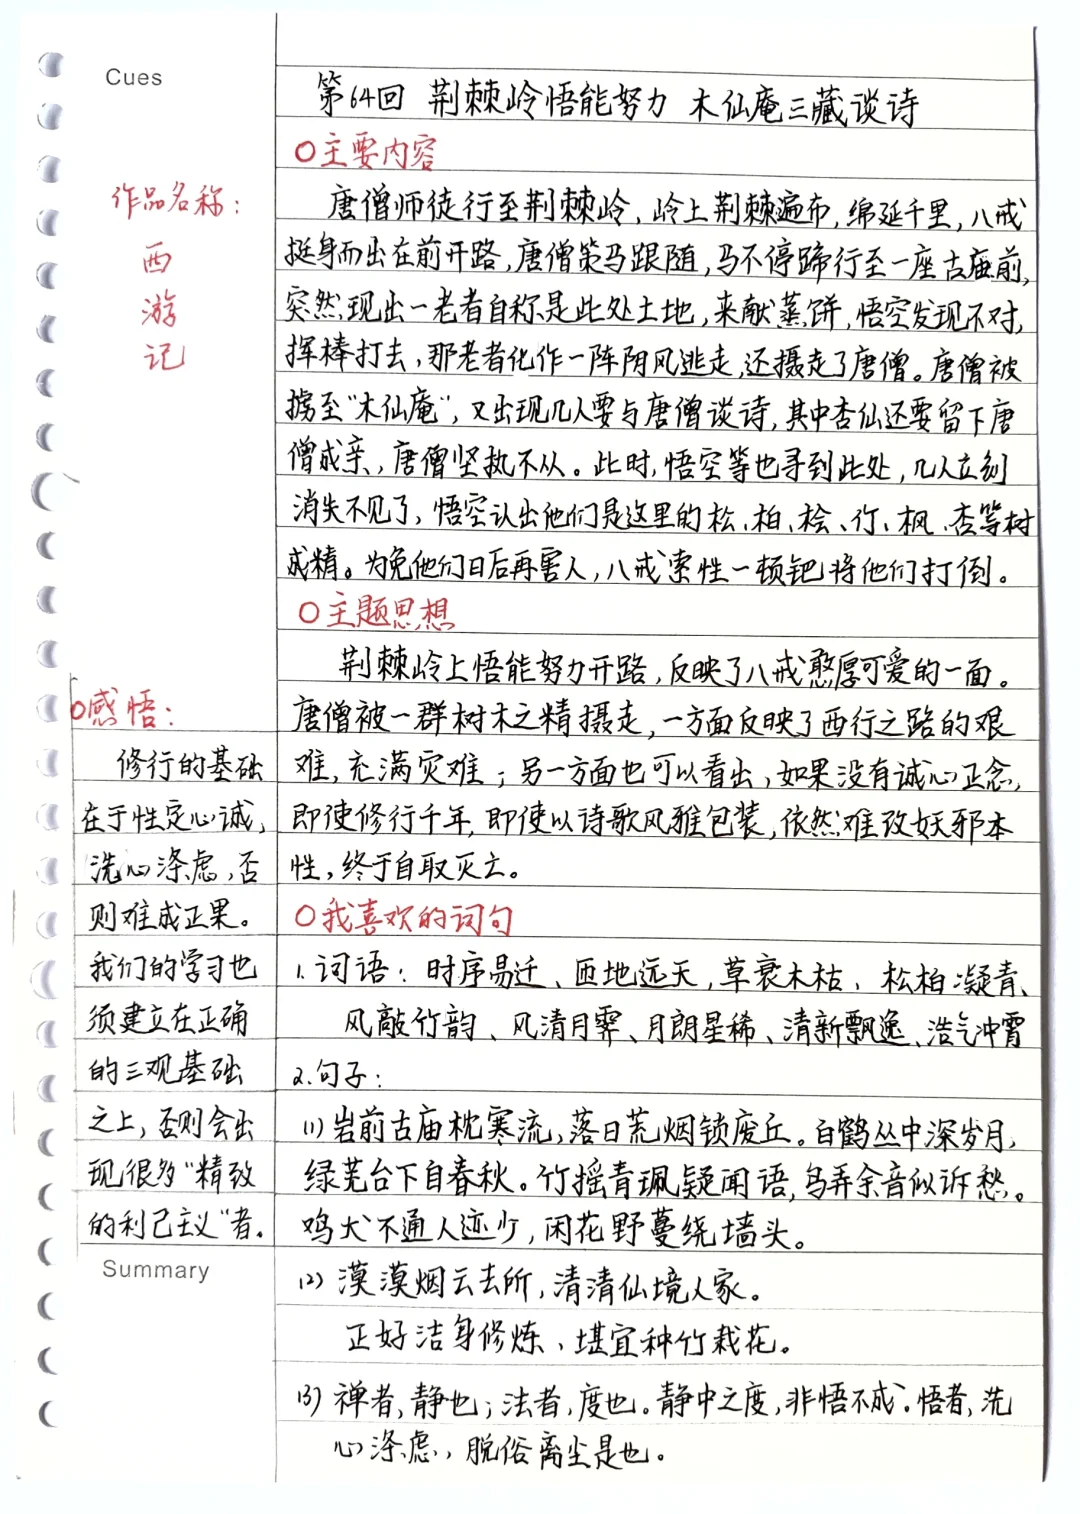 Cues
第64回 荆棘岭悟能努力 木仙庵三藏谈诗
○主要内容
作品名称：
西
游
记
唐僧师徒行至荆棘岭，岭上荆棘遍布，绵延千里，八戒
挺身而出在前开路，唐僧策马跟随，马不停蹄行至一座古庙前，
突然现出一老者自称是此处土地，来献蒸饼，悟空发现不对，
挥棒打去，那老者化作一阵阴风逃走，还摄走了唐僧。唐僧被
掳至“木仙庵”，又出现几人要与唐僧谈诗，其中杏仙还要留下唐
僧成亲，唐僧坚执不从。此时，悟空等也寻到此处，几人立刻
消失不见了，悟空认出他们是这里的松、柏、桧、竹、枫、杏等树
成精。为免他们日后再害人，八戒索性一顿钯将他们打倒。
○主题思想
荆棘岭上悟能努力开路，反映了八戒憨厚可爱的一面。
唐僧被一群树木之精摄走，一方面反映了西行之路的艰
难，充满灾难；另一方面也可以看出，如果没有诚心正念，
即使修行千年，即使以诗歌风雅包装，依然难改妖邪本
性，终于自取灭亡。
○我喜欢的词句
1.词语：时序易迁、匝地远天，草衰木枯、松柏凝青、
风敲竹韵、风清月霁、月朗星稀、清新飘逸、浩气冲霄
2.句子：
(1)岩前古庙枕寒流，落日荒烟锁废丘。白鹤丛中深岁月，
绿芜台下自春秋。竹摇青珮疑闻语，鸟弄余音似诉愁。
鸡犬不通人迹少，闲花野蔓绕墙头。
(2)漠漠烟云去所，清清仙境人家。
正好洁身修炼、堪宜种竹栽花。
(3)禅者，静也；法者，度也。静中之度，非悟不成。悟者，洗
心涤虑，脱俗离尘是也。
○感悟：
修行的基础
在于性定心诚，
洗心涤虑，否
则难成正果。
我们的学习也
须建立在正确
的三观基础
之上，否则会出
现很多“精致
的利己主义”者。
Summary